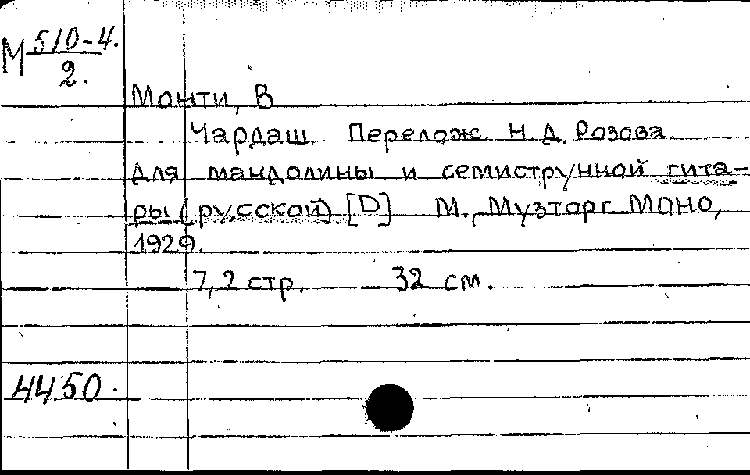 М 510-4.
2.
Монти, В
Чардаш Перелож. Н. Д. Розова
для мандолины и семиструнной гита-
ры (русской) [D] М., Музторг МОНО,
1929.
7, 2 стр. 32 см.
4450.